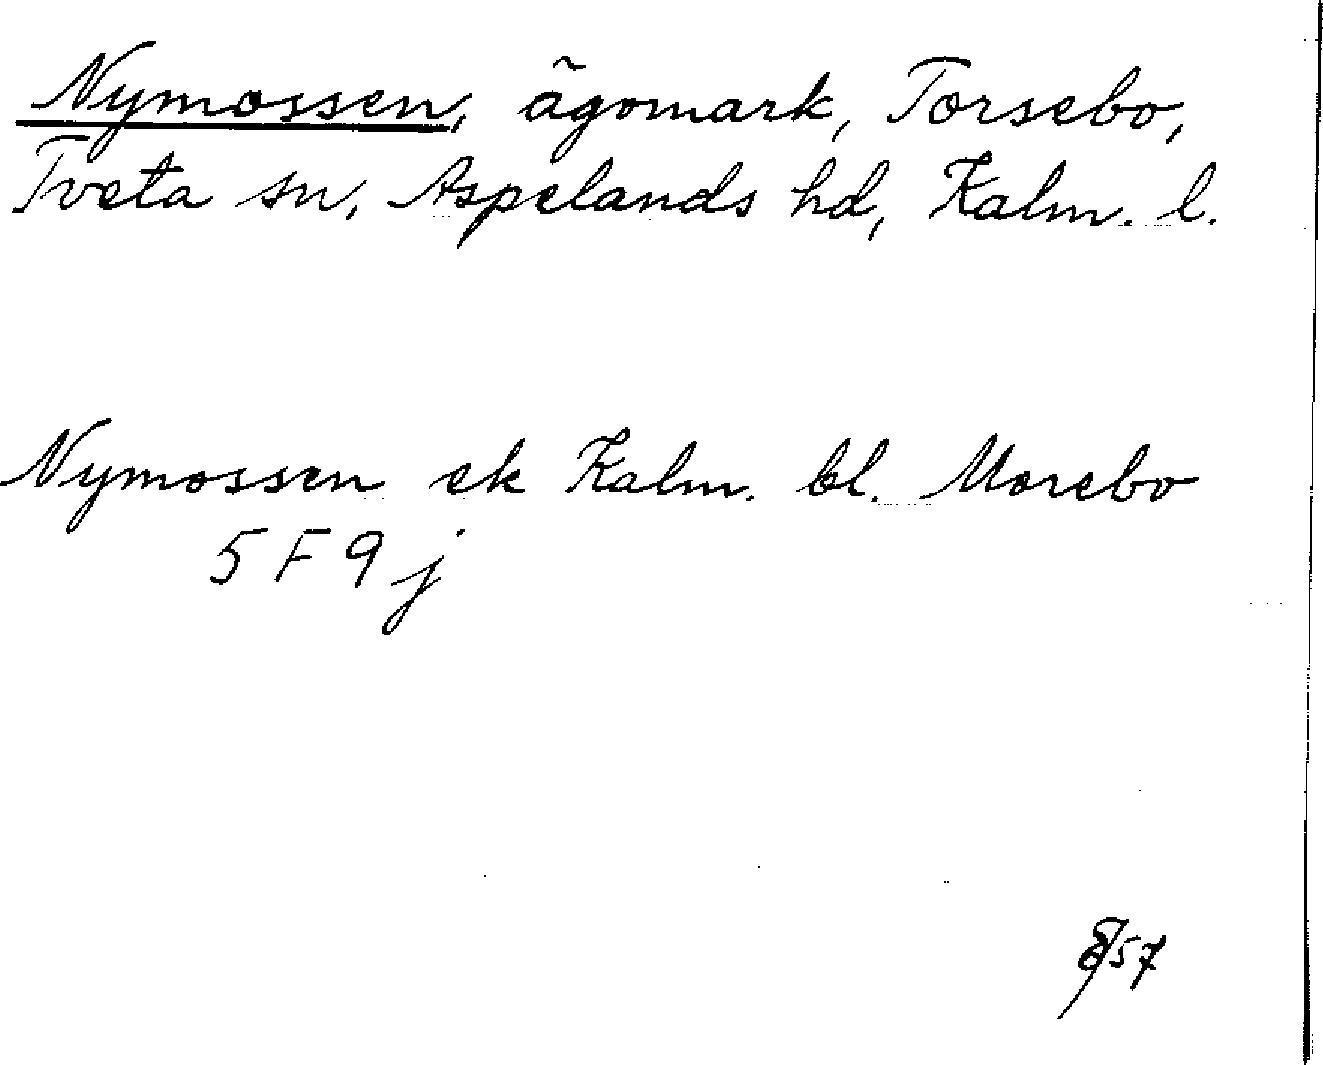 Nymossen, ägomark, Torsebo,
Tveta sn, Aspelands hd, Kalm. l.
Nymossen ek Kalm. bl. Morebo
5 F 9 j
8/57